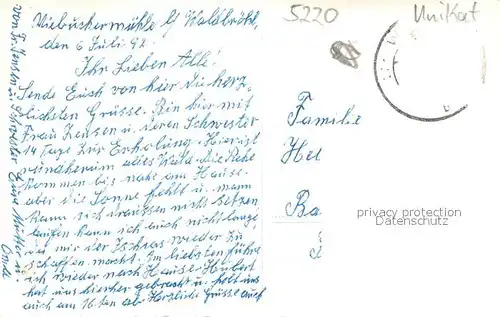 5220
Unikat
Niebuckermühle b/ Waldbröl,
den 6 Juli 92.
Ihr Lieben Alle!
Sende Euch von hier die herz-
lichsten Grüsse. Bin hier mit
Frau Rensen u. deren Schwester
14 Tage zur Erholung. Hier ist
rundherum alles Wald. Die Rehe
kommen bis nahe am Hause.
aber die Sonne fehlt u. mann
kann sich draussen nicht setzen
laufen kann ich auch nicht lange
da mir der Ischias wieder zu
schaffen macht. Am liebsten führe
ich wieder nach Hause. Hubert
hat uns hierher gebracht u. holt uns
auch am 16.ten ab. Herzliche Grüsse auch
von Fr. u. Schwester Eure Mutter u.
Omi
Familie
Hel
Ba
privacy protection
Datenschutz